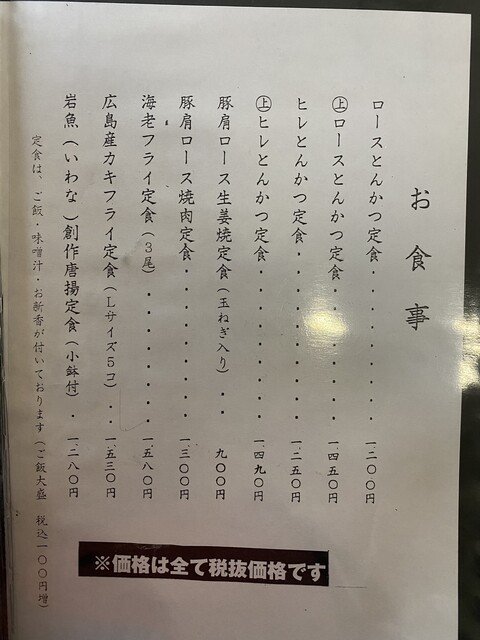 お食事
ロースとんかつ定食・・・・・・・・一、二〇〇円
㊤ロースとんかつ定食・・・・・・・一、四五〇円
ヒレとんかつ定食・・・・・・・・・一、二五〇円
㊤ヒレとんかつ定食・・・・・・・・一、四九〇円
豚肩ロース生姜焼定食（玉ねぎ入り）・・九〇〇円
豚肩ロース焼肉定食・・・・・・・・一、三〇〇円
海老フライ定食（３尾）・・・・・・一、五八〇円
広島産カキフライ定食（Ｌサイズ５コ）・・一、五三〇円
岩魚（いわな）創作唐揚定食（小鉢付）・一、二八〇円
定食は、ご飯・味噌汁・お新香が付いております（ご飯大盛 税込一〇〇円増）
※価格は全て税抜価格です